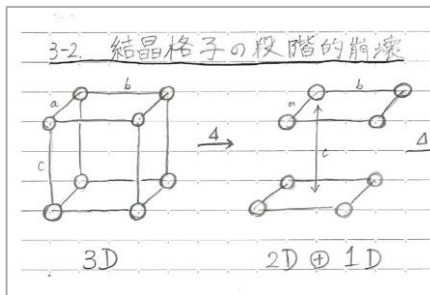 3-2. 結晶格子の段階的崩壊
a b Δ a b Δ
c c
3D 2D ⊕ 1D